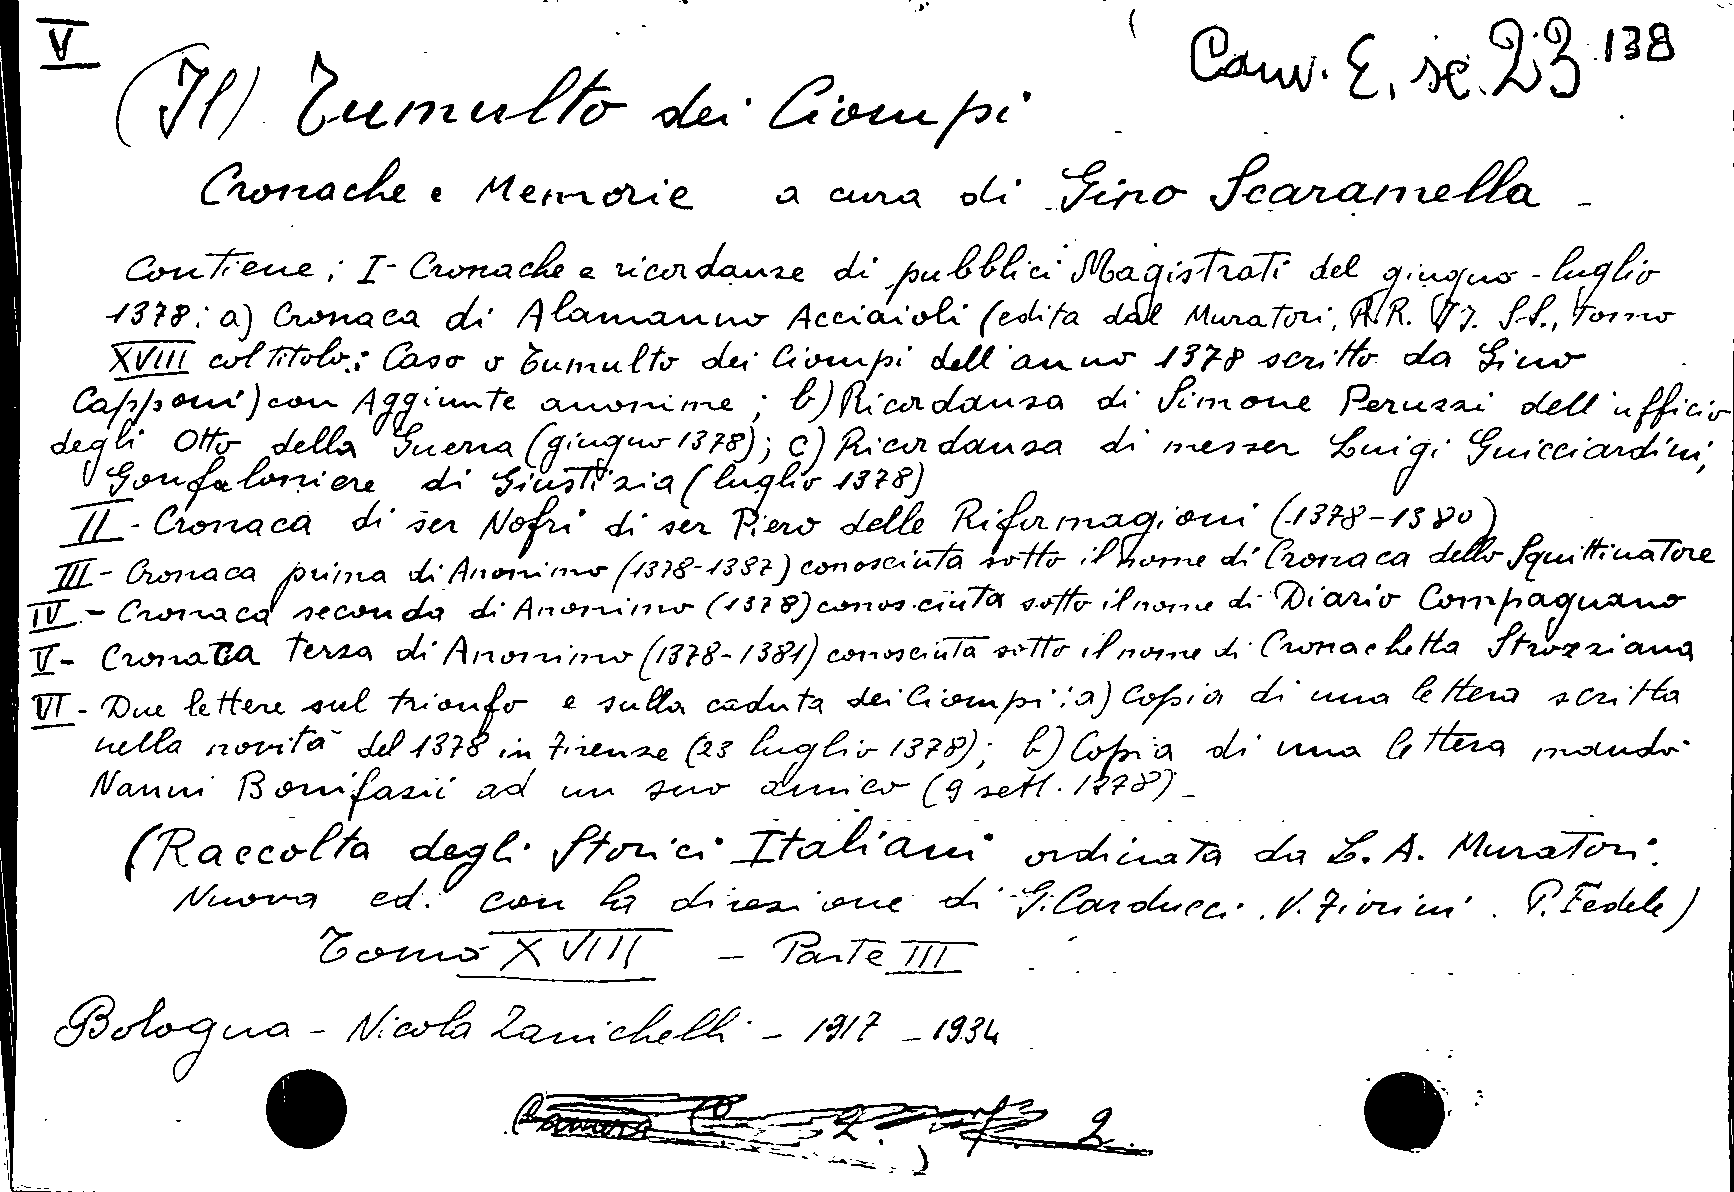 V
Cam. E. sc. 23 138
(Il) Tumulto dei Ciompi
Cronache e Memorie a cura di Gino Scaramella -
Contiene: I - Cronache e ricordanze di pubblici Magistrati del giugno - luglio
1378: a) Cronaca di Alamanno Acciaioli (edita dal Muratori, RR. II. SS., Tomo
XVIII col titolo: Caso o Tumulto dei Ciompi dell'anno 1378 scritto da Gino
Capponi) con Aggiunte anonime; b) Ricordanza di Simone Peruzzi dell'ufficio
degli Otto della Guerra (giugno 1378); c) Ricordanza di messer Luigi Guicciardini,
Gonfaloniere di Giustizia (luglio 1378)
II - Cronaca di ser Nofri di ser Piero delle Riformagioni (1378-1380)
III - Cronaca prima di Anonimo (1378-1387) conosciuta sotto il nome di Cronaca dello Squittinatore
IV - Cronaca seconda di Anonimo (1378) conosciuta sotto il nome di Diario Compagnano
V - Cronaca terza di Anonimo (1378-1381) conosciuta sotto il nome di Cronachetta Strozziana
VI - Due lettere sul trionfo e sulla caduta dei Ciompi: a) Copia di una lettera scritta
nella novità del 1378 in Firenze (23 luglio 1378); b) Copia di una lettera mandò
Nanni Bonifazii ad un suo amico (9 sett. 1378) -
(Raccolta degli Storici Italiani ordinata da L. A. Muratori.
Nuova ed. con la direzione di G. Carducci. V. Fiorini. P. Fedele)
Tomo XVIII - Parte III
Bologna - Nicola Zanichelli - 1917 - 1934
Camera 2. 2.